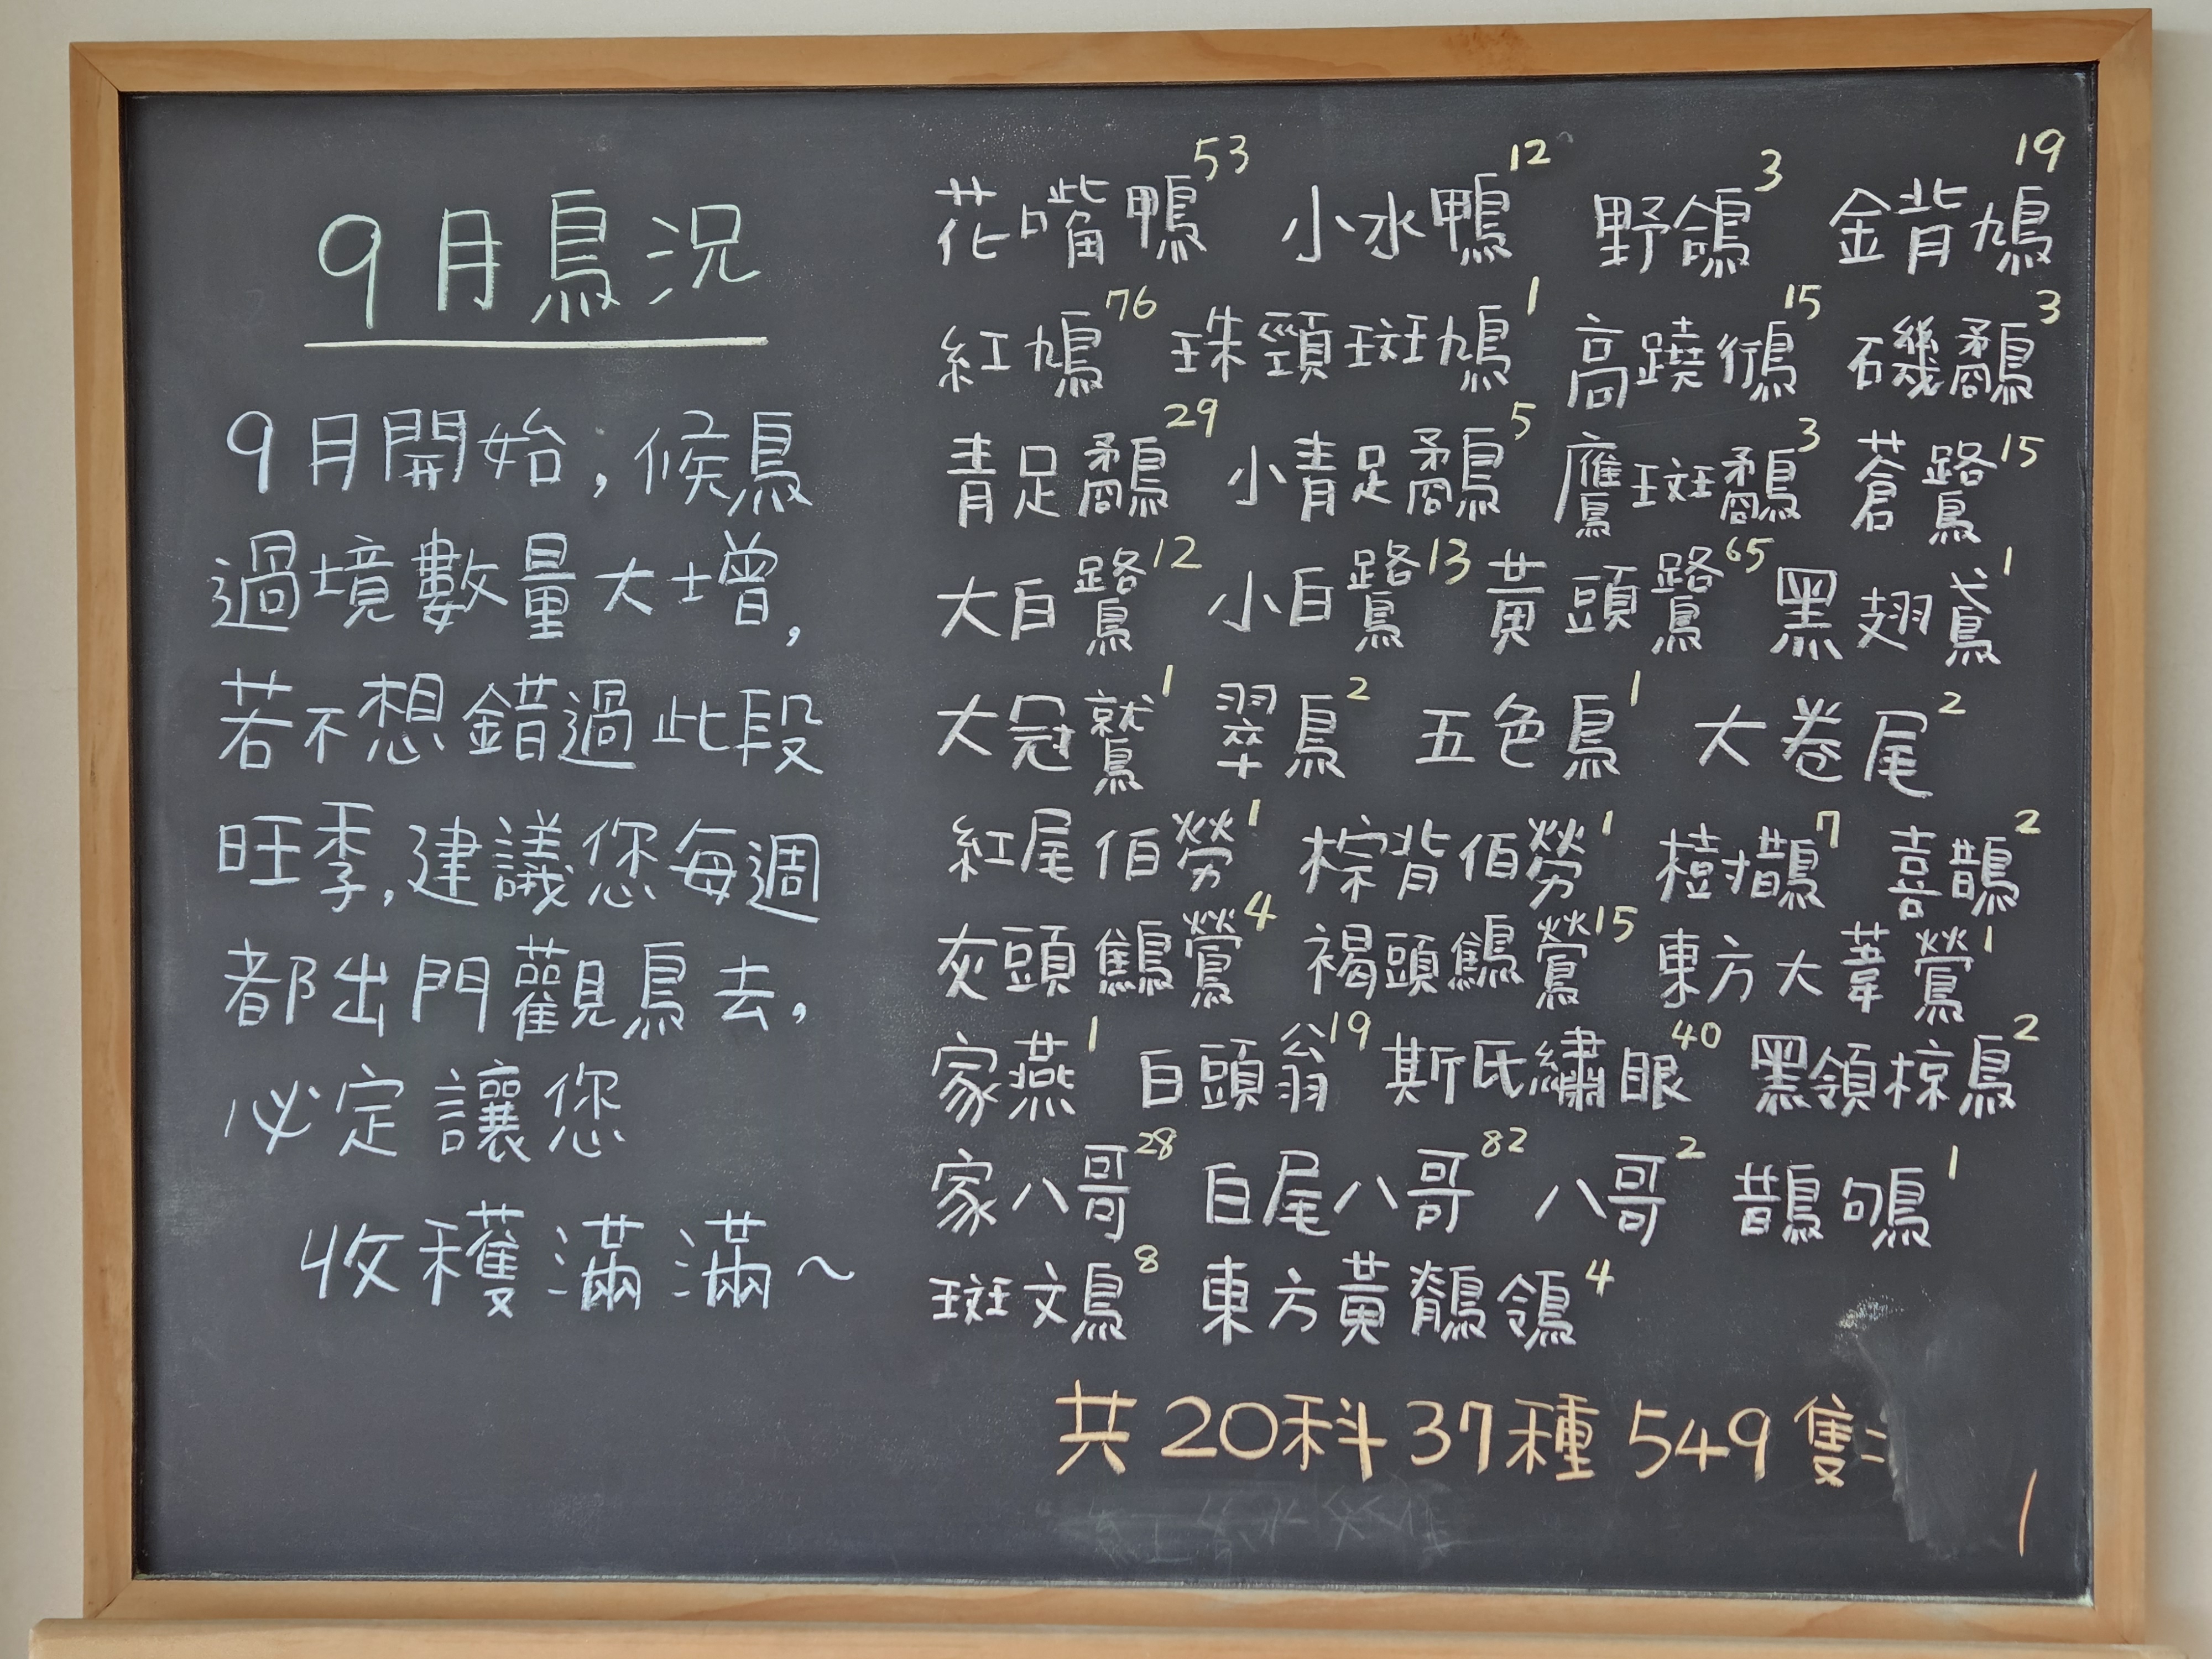 9月鳥況
9月開始，候鳥
過境數量大增，
若不想錯過此段
旺季，建議您每週
都出門觀鳥去，
必定讓您
收穫滿滿～
花嘴鴨53 小水鴨12 野鴿3 金背鳩19
紅鳩76 珠頸斑鳩1 高蹺鴴15 磯鷸3
青足鷸29 小青足鷸5 鷹斑鷸3 蒼鷺15
大白鷺12 小白鷺13 黃頭鷺65 黑翅鳶1
大冠鷲1 翠鳥2 五色鳥1 大卷尾2
紅尾伯勞1 棕背伯勞1 樹鵲7 喜鵲2
灰頭鷦鶯4 褐頭鷦鶯15 東方大葦鶯1
家燕1 白頭翁19 斯氏繡眼40 黑領椋鳥2
家八哥28 白尾八哥82 八哥2 鵲鴝1
斑文鳥8 東方黃鶺鴒4
共20科37種549隻